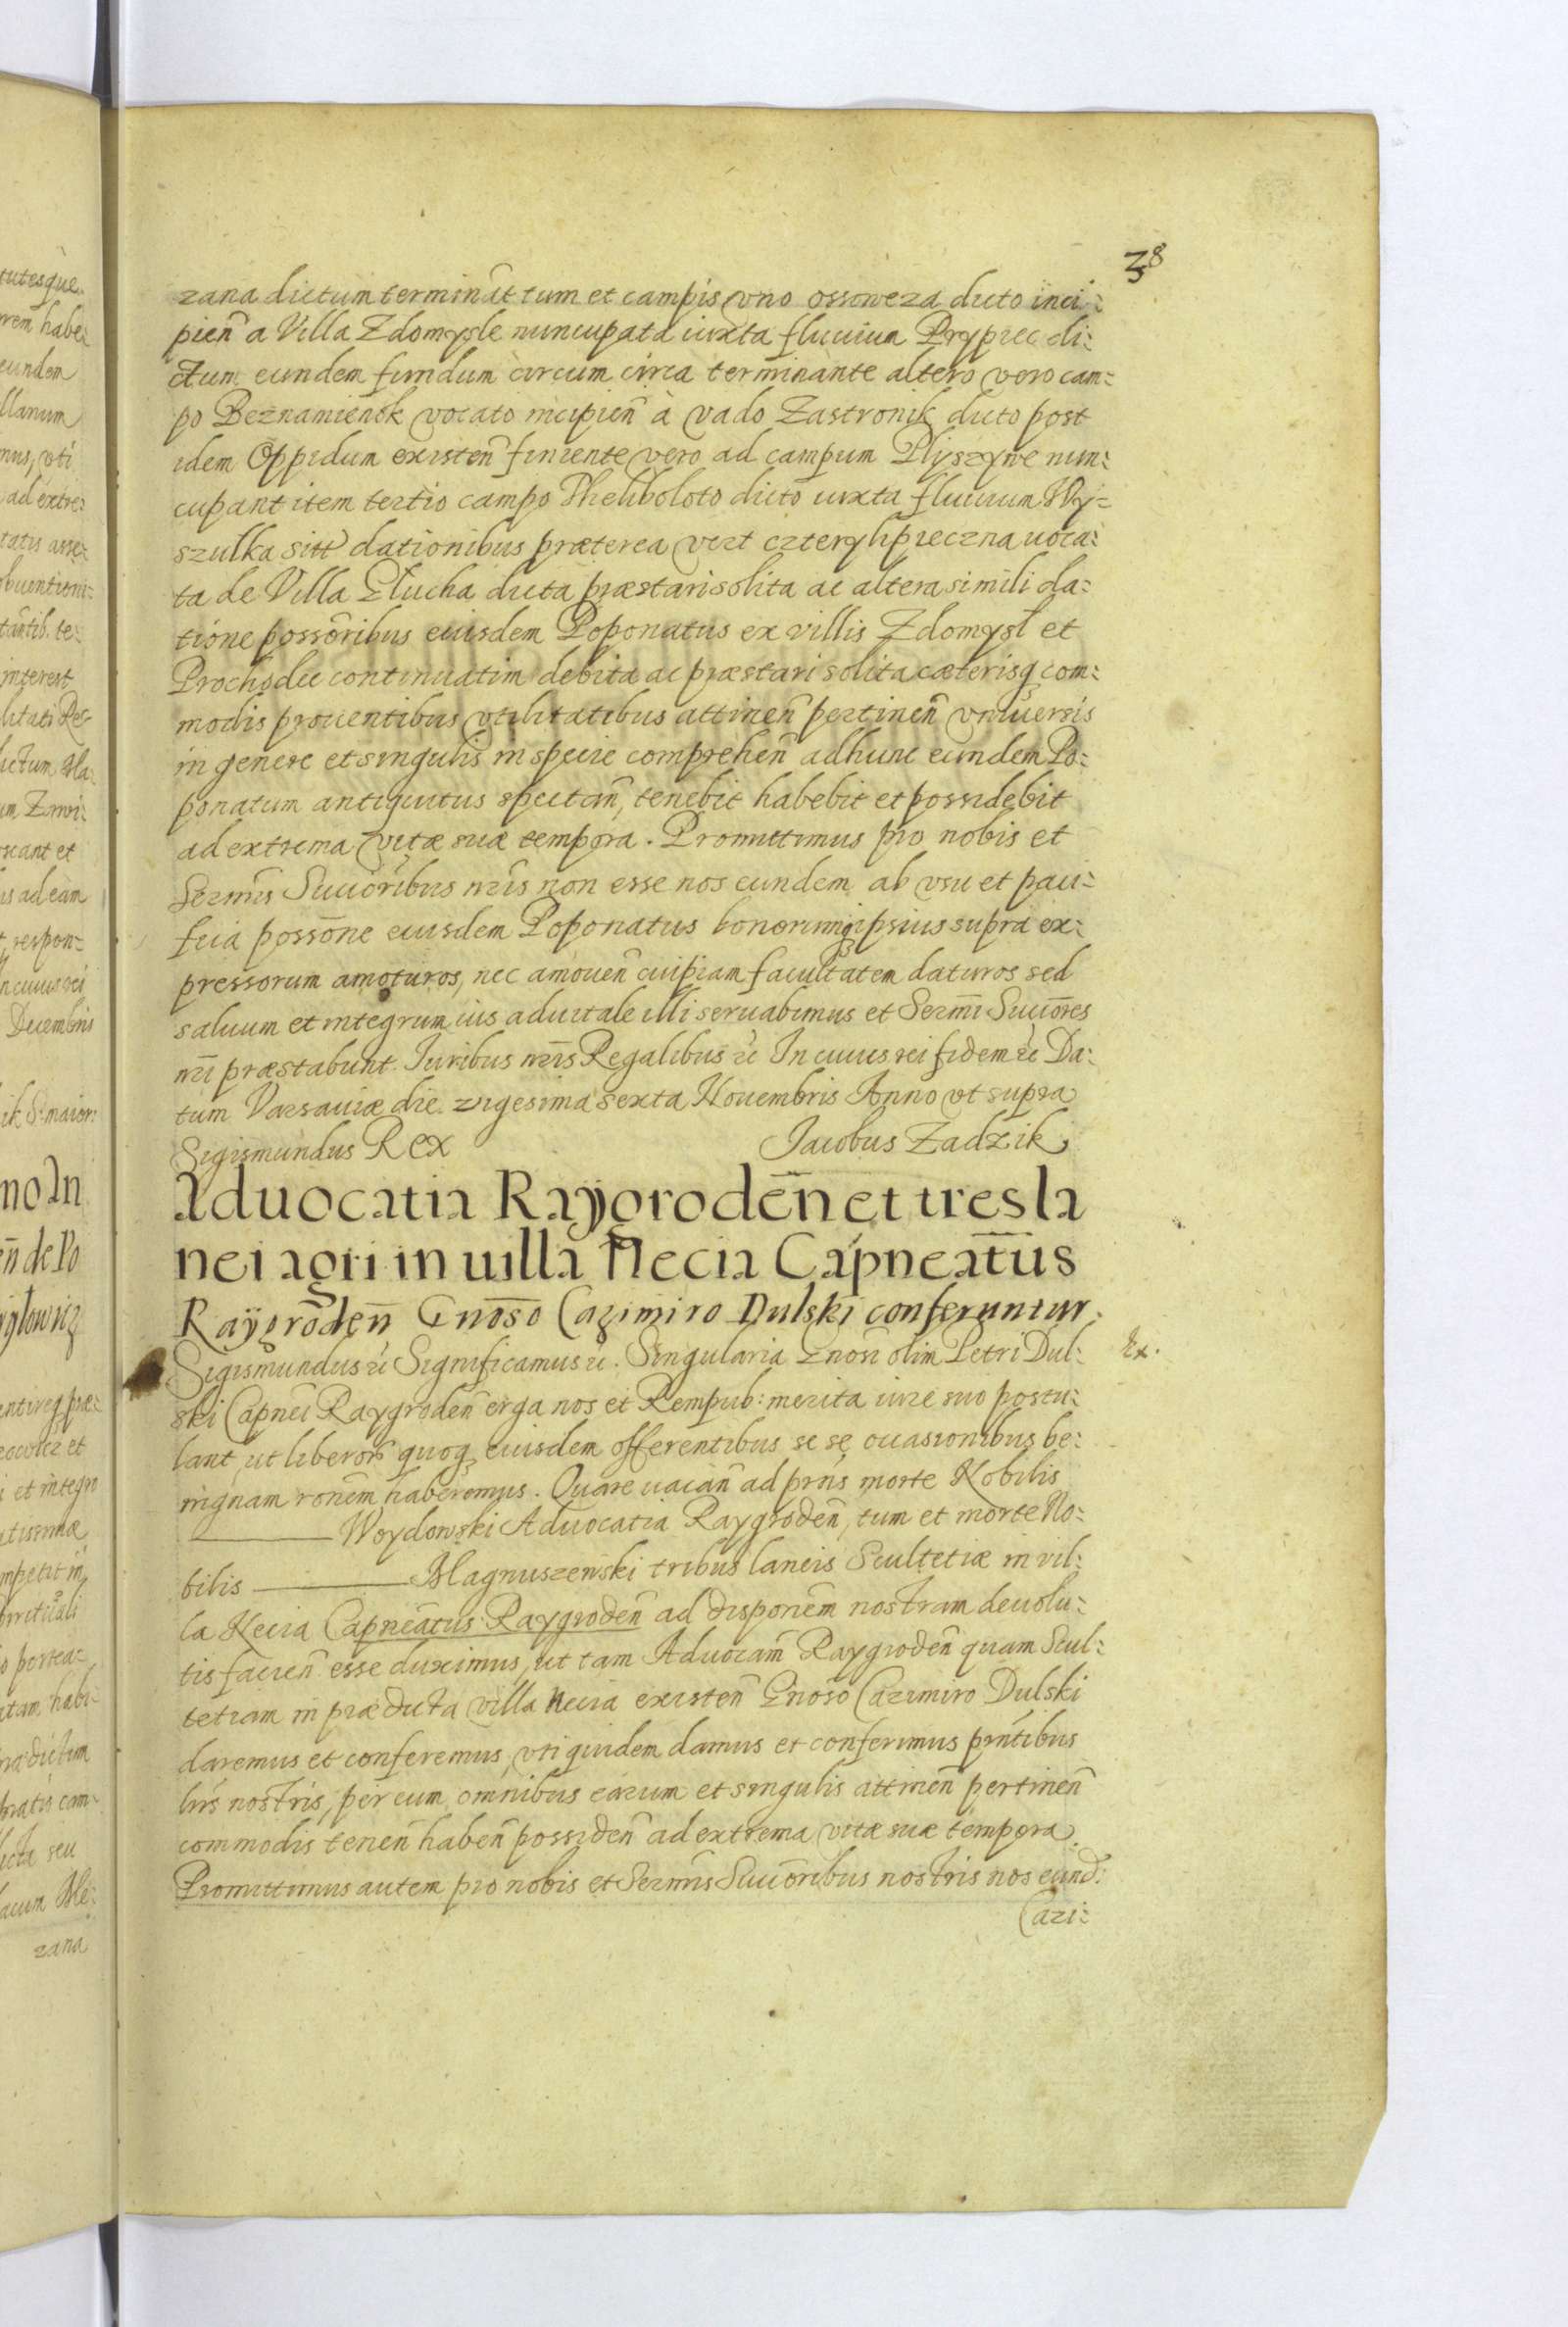 38
zana dictum terminãt tum et campis vno ossoweza dicto inci:
pieñ a Villa Zdomysle nuncupata iuxta fluuium Prypiec di:
ctum eundem fundum circum circa terminante altero vero cam:
po Beznamienik vocato incipieñ à vado Zastronik dicto post
idem Oppidum existeñ finiente vero ad campum Plyszywe nun:
cupant item tertio campo Theliboloto dicto iuxta fluuium Wy:
szulka sitt dationibus præterea vezt czteryhpieczna uoca:
ta de Villa Głucha dicta præstari solita ac altera simili da:
tione possõribus eiusdem Poponatus ex villis Zdomysl et
Prochodec continuatim debita ac præstari solita cæterisq com:
modis prouentibus vtilitatibus attineñ pertineñ vniuersis
in genere et singulis in specie compreheñ ad hunc eundem Po:
ponatum antiquitus spectañ, tenebit habebit et possidebit
ad extrema vitæ suæ tempora. Promittimus pro nobis et
Sermis Succõribus nr̃is non esse nos eundem ab vsu et paci:
fica possõne eiusdem Poponatus bonorumq ipsius supra ex:
pressorum amoturos, nec amoueñ cuipiam facultatem daturos sed
saluum et integrum ius aduitale illi seruabimus et Sermi Succõres
nr̃i præstabunt. Iuribus nr̃is Regalibus &c In cuius rei fidem &c Da:
tum Varsauiæ die vigesima sexta Nouembris Anno vt supra
Sigismundus Rex Jacobus Zadzik
Aduocatia Raygrodeñ et tres la
nei agri in uilla Necia Capneat̃us
Raygrodeñ Gnoso Cazimiro Dulski conferuntur.
Sigismundus &c Significamus &c. Singularia Gnosi olim Petri Dul:
Ex.
ski Capnei Raygrodeñ erga nos et Rempub: merita iure suo postu:
lant, ut liberor̃ quoq eiusdem offerentibus se se occasionibus be:
nignam ronem haberemus. Quare vacañ ad prñs morte Nobilis
Woydowski Aduocatia Raygrodeñ, tum et morte No:
bilis Magnuszewski tribus laneis Scultetiæ in vil:
la Necia Capneãtus Raygrodeñ ad disponem nostram deuolu:
tis facieñ esse duximus, ut tam Aduocam̃ Raygrodeñ quam Scul:
tetiam in prædicta villa Necia existeñ Gnoso Cazimiro Dulski
daremus et conferemus, vti quidem damus et conferimus prñtibus
lr̃is nostris, per eum omnibus earum et singulis attineñ pertineñ
commodis teneñ habeñ possideñ ad extrema vitæ suæ tempora.
Promittimus autem pro nobis et Sermis Succõribus nostris nos eund:
Cazi: